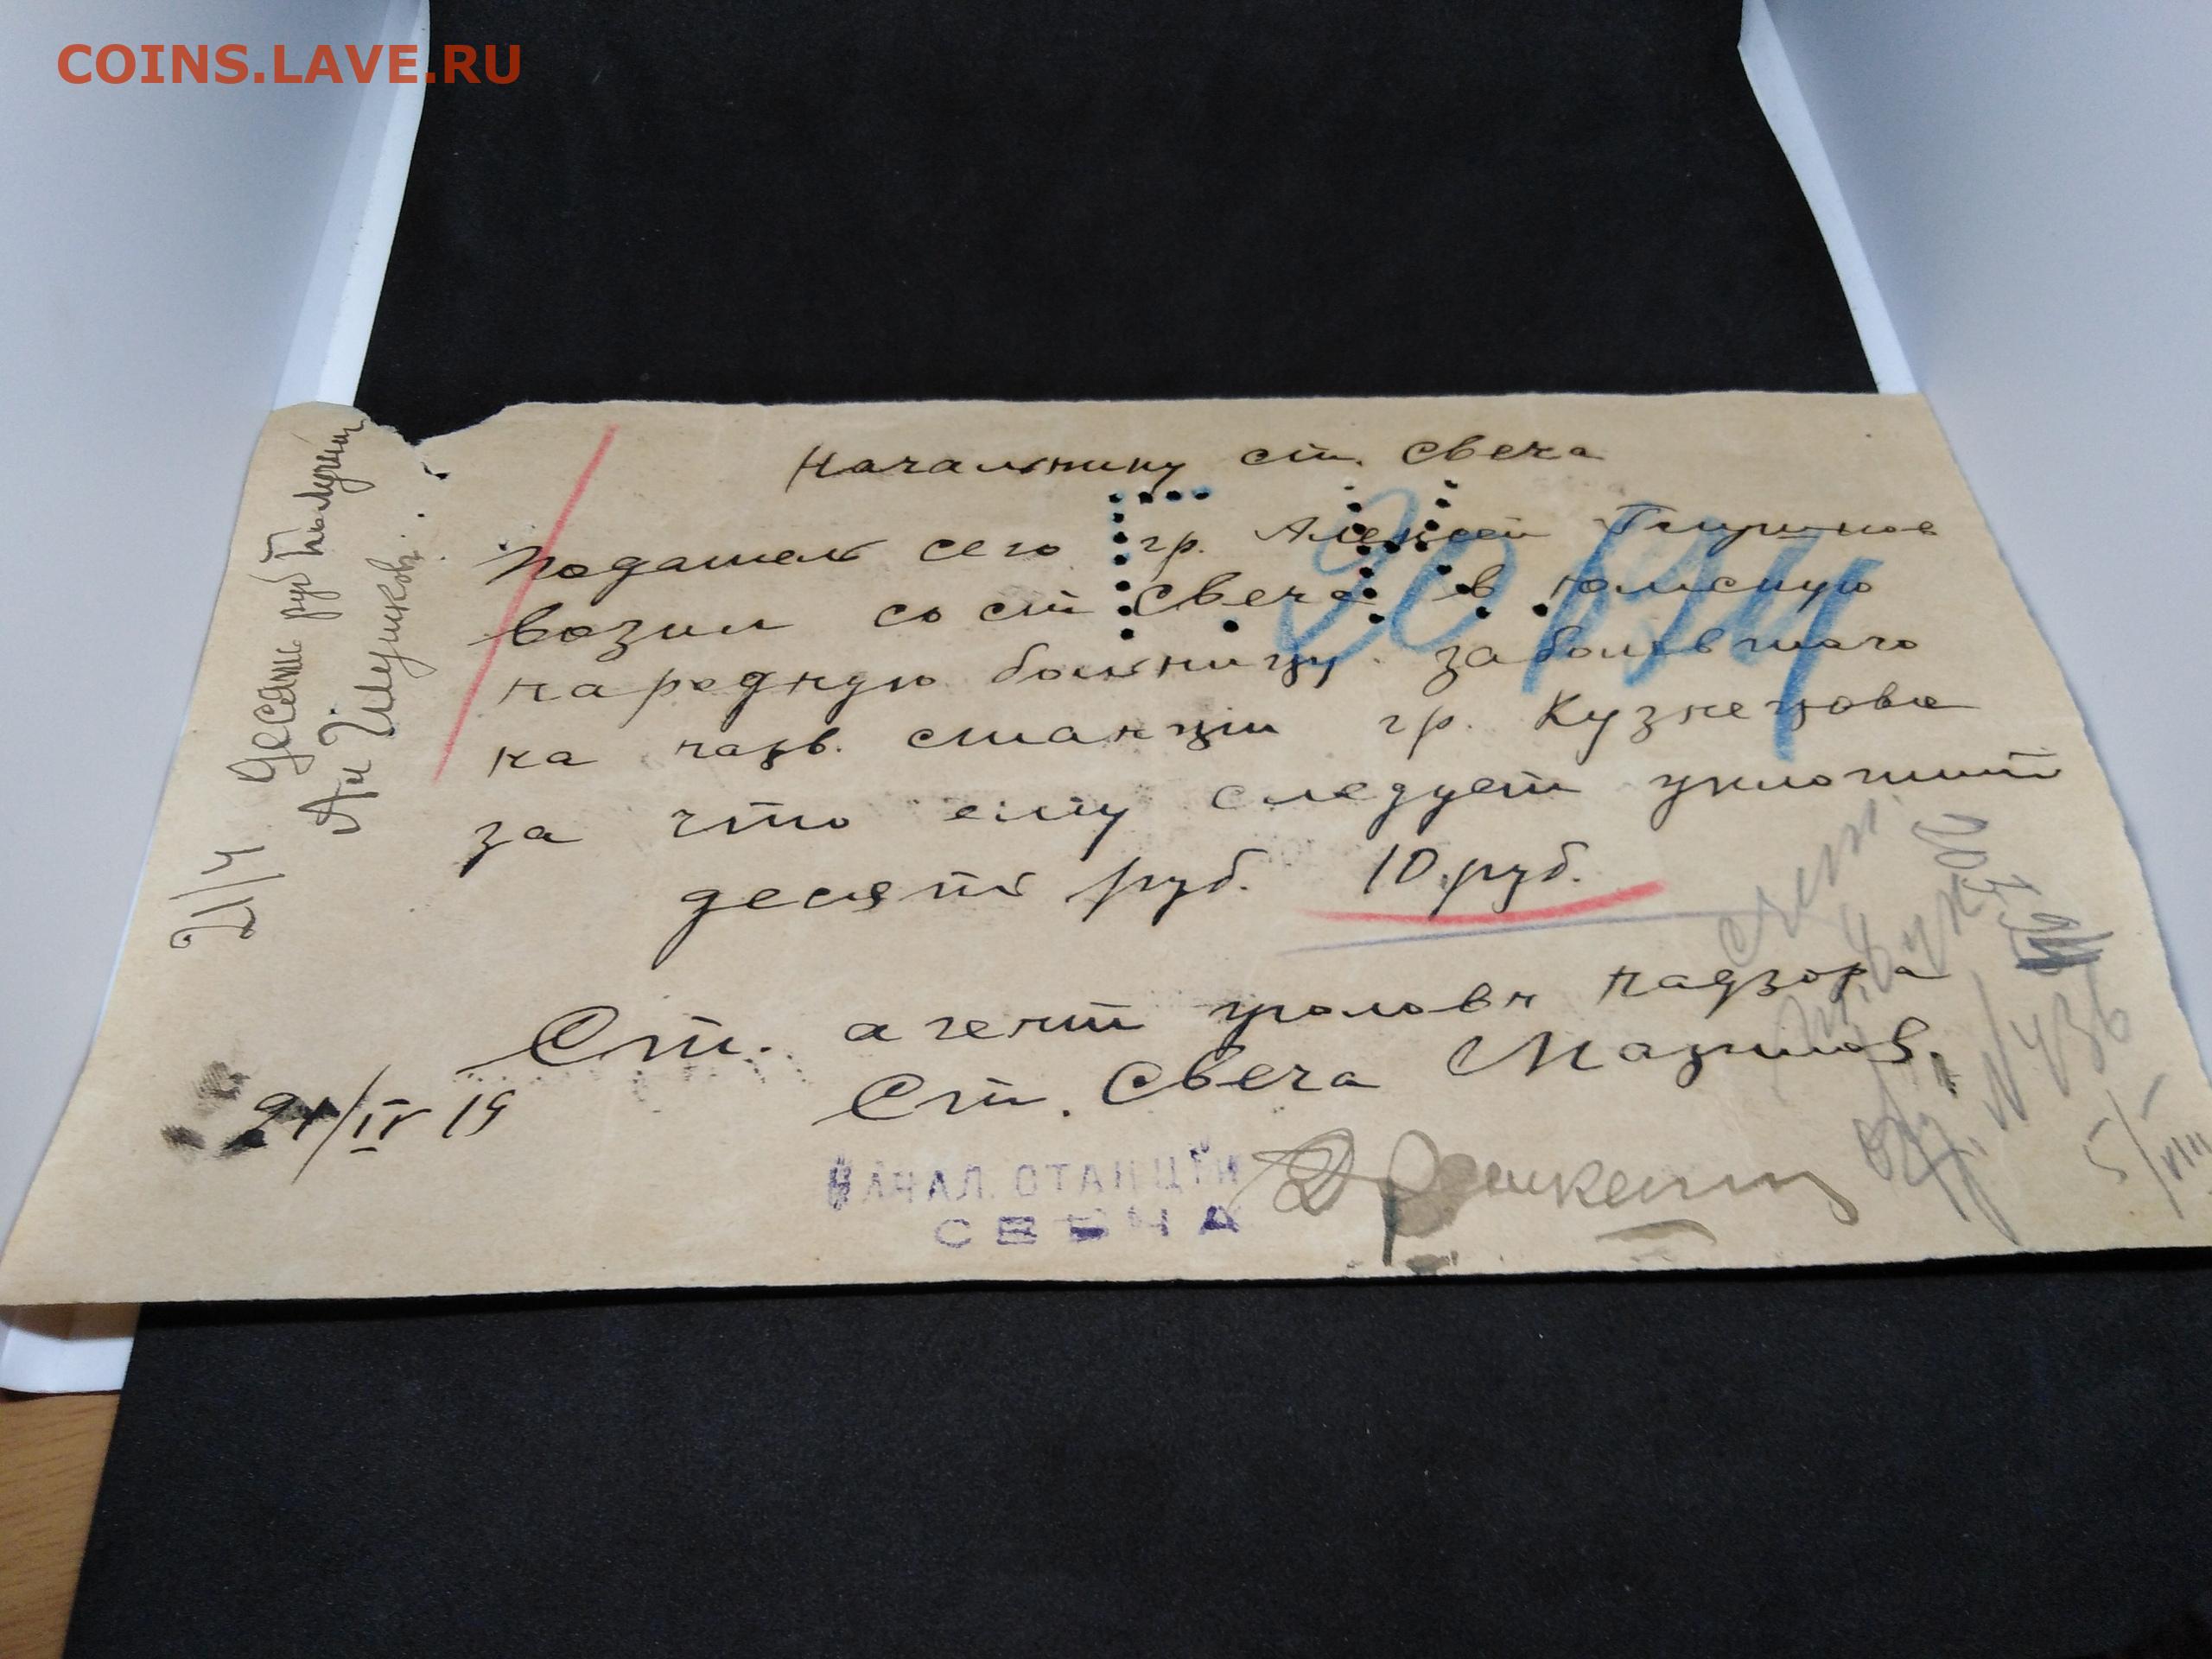 COINS.LAVE.RU
Начальнику ст. Свеча
Податель сего гр. Алексей
возил со ст Свеча в юмскую
народную больницу заболевшаго
на назв. станции гр. Кузнецова
за что ему следует уплотит
десять руб. 10 руб.
Ст. агент уголовн надзора
Ст. Свеча
21/IV 19
НАЧАЛ. СТАНЦІИ
СВЕЧА
21/4 Десять руб получил
Счет
№ 436
5/VIII